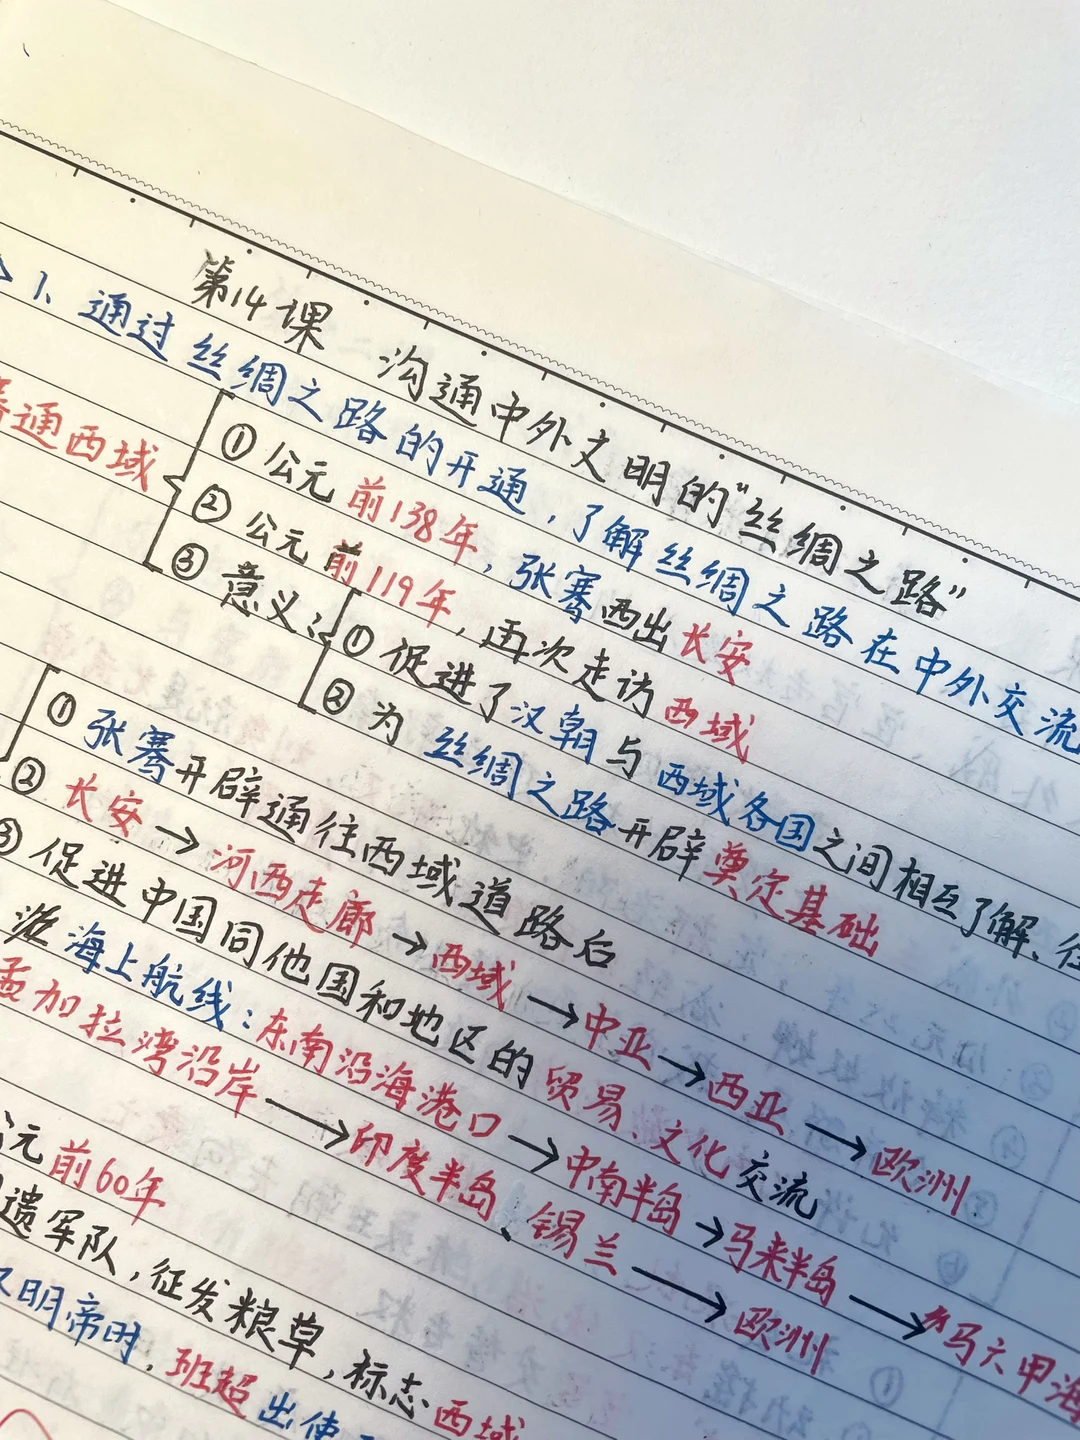 第14课 沟通中外文明的"丝绸之路"
1、通过丝绸之路的开通，了解丝绸之路在中外交流
通西域
①公元前138年，张骞西出长安
②公元前119年，再次走访西域
③意义：
①促进了汉朝与西域各国之间相互了解、往
②为丝绸之路开辟奠定基础
①张骞开辟通往西域道路后
②长安→河西走廊→西域→中亚→西亚→欧洲
③促进中国同他国和地区的贸易、文化交流
海上航线：东南沿海港口→中南半岛→马来半岛→马六甲海
孟加拉湾沿岸→印度半岛、锡兰→欧洲
元前60年
遣军队，征发粮草，标志西域
明帝时，班超出使